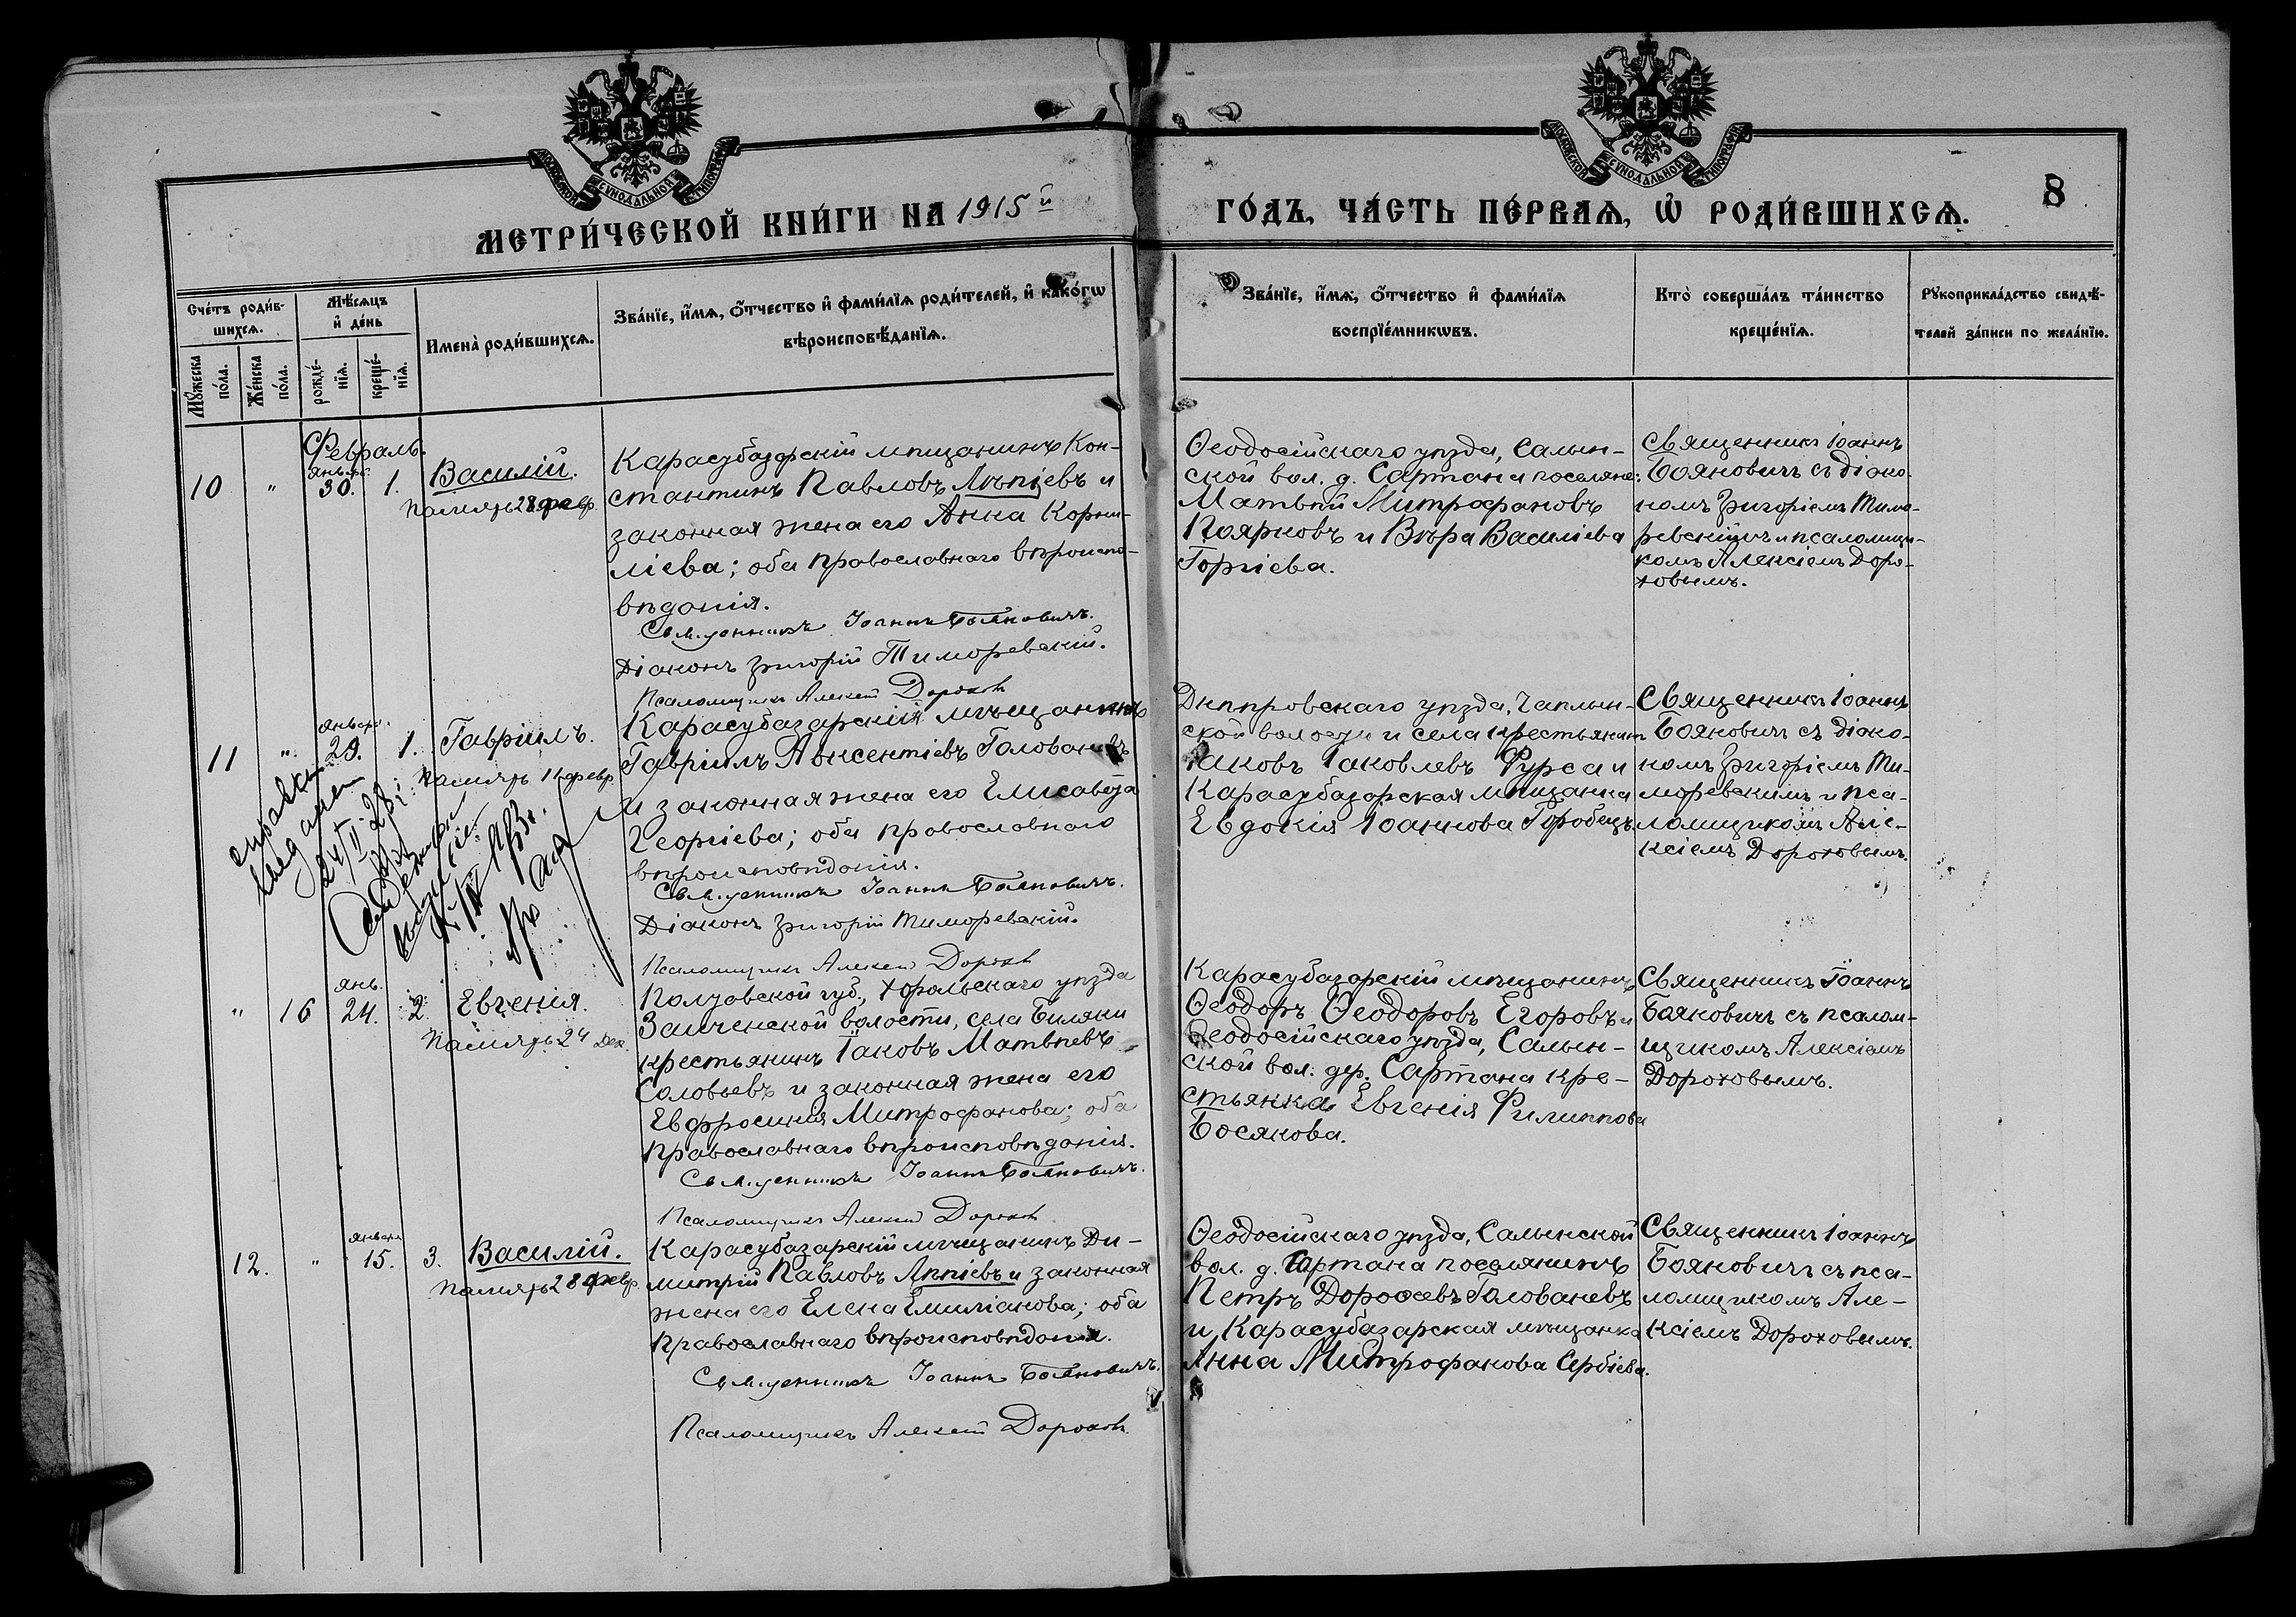 МЕТРИ́ЧЕСКОЙ КНИ́ГИ НА 1915й
ГО́ДЪ, ЧА́СТЬ ПЕ́РВАѦ, Ѡ҆ РОДИ́ВШИХСѦ.
8
Сче́тъ роди́в-
шихсѧ.
Мꙋ́жеска
по́ла.
Же́нска
по́ла.
Мѣ́сѧцъ
и҆ де́нь
рожде́-
нїѧ.
креще́-
нїѧ.
Имена̀ роди́вшихсѧ.
Зва́нїе, и҆́мѧ, ѻ҆́тчество и҆ фами́лїѧ роди́телей, и҆ како́гѡ
вѣроисповѣ́данїѧ.
Зва́нїе, и҆́мѧ, ѻ҆́тчество и҆ фами́лїѧ
воспрїе́мникѡвъ.
Кто̀ соверша́лъ та́инство
креще́нїѧ.
Рꙋкоприкла́дство свидѣ́-
телей за́писи по жела́нїю.
Февраль.
10 " январь. 30. 1. Василій.
Память 28 февр.
Карасубазарскій мѣщанинъ Кон-
стантинъ Павловъ Лѣпіевъ и
законная жена его Анна Корни-
ліева; оба православнаго вѣроиспо-
вѣданія.
Священникъ Іоаннъ Бояновичъ.
Діаконъ Григорій Тиморевскій.
Псаломщикъ Алексей Дорохов
Ѳеодосійскаго уѣзда, Салын-
ской вол. д. Сартана поселяне:
Матвѣй Митрофановъ
Поярковъ и Вѣра Василіева
Горгіева.
Священникъ Іоаннъ
Бояновичъ съ діако-
номъ Григоріемъ Тимо-
ревскимъ и псаломщи-
комъ Алексіемъ Доро-
ховымъ.
11 " январь. 29. 1. Гавріилъ.
Память 11 февр.
справка
выдана
24/II
Карасубазарскій мѣщанинъ
Гавріилъ Авксентіевъ Голованевъ
и законная жена его Елисавета
Георгіева; оба православнаго
вѣроисповѣданія.
Священникъ Іоаннъ Бояновичъ.
Діаконъ Григорій Тиморевскій.
Псаломщикъ Алексей Дорохов
Днѣпровскаго уѣзда, Чаплын-
ской волости и села крестьянин
Іаковъ Іаковлевъ Фурса и
Карасубазарская мѣщанка
Евдокія Іоаннова Горобецъ.
Священникъ Іоаннъ
Бояновичъ съ діако-
номъ Григоріемъ Ти-
моревскимъ и пса-
ломщикомъ Але-
ксіемъ Дороховымъ.
" 16 янв. 24. 2. Евгенія.
Память 24 Дек.
Полтавской губ., Хорольскаго уѣзда
Заиченской волости, села Биляки
крестьянинъ Іаковъ Матвѣевъ
Соловьевъ и законная жена его
Евфросинія Митрофанова; оба
православнаго вѣроисповѣданія.
Священникъ Іоаннъ Бояновичъ.
Псаломщикъ Алексей Дорохов
Карасубазарскій мѣщанинъ
Ѳеодоръ Ѳеодоровъ Егоровъ и
Ѳеодосійскаго уѣзда, Салын-
ской вол. дер. Сартана кре-
стьянка Евгенія Филиппова
Босякова.
Священникъ Іоаннъ
Бояновичъ съ псалом-
щикомъ Алексіемъ
Дороховымъ.
12. " январь 15. 3. Василій.
Память 28 февр.
Карасубазарскій мѣщанинъ Ди-
митрій Павловъ Лѣпіевъ и законная
жена его Елена Емиліанова; оба
православнаго вѣроисповѣданія.
Священникъ Іоаннъ Бояновичъ.
Псаломщикъ Алексей Дорохов
Ѳеодосійскаго уѣзда, Салынской
вол. д. Сартана поселянинъ
Петръ Дороѳеевъ Голованевъ
и Карасубазарская мѣщанка
Анна Митрофанова Сербіева.
Священникъ Іоаннъ
Бояновичъ съ пса-
ломщикомъ Але-
ксіемъ Дороховымъ.